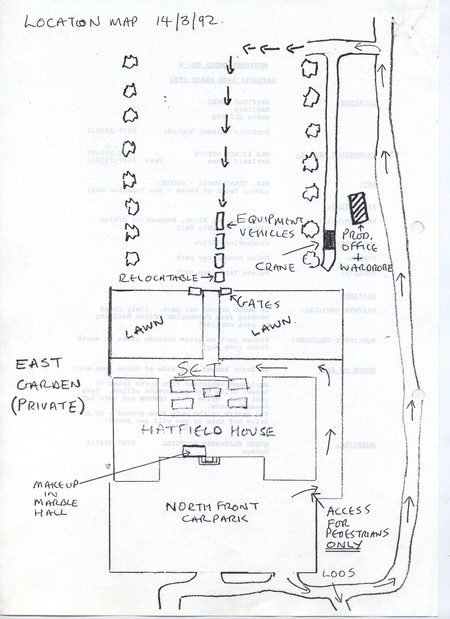 LOCATION MAP 14/3/92.
EQUIPMENT
VEHICLES
PROD.
OFFICE
+
WARDROBE
CRANE
RELOCATABLE
GATES
LAWN
LAWN.
SET
EAST
GARDEN
(PRIVATE)
HATFIELD HOUSE
MAKEUP
IN
MARBLE
HALL
NORTH FRONT
CARPARK
ACCESS
FOR
PEDESTRIANS
ONLY
LOOS